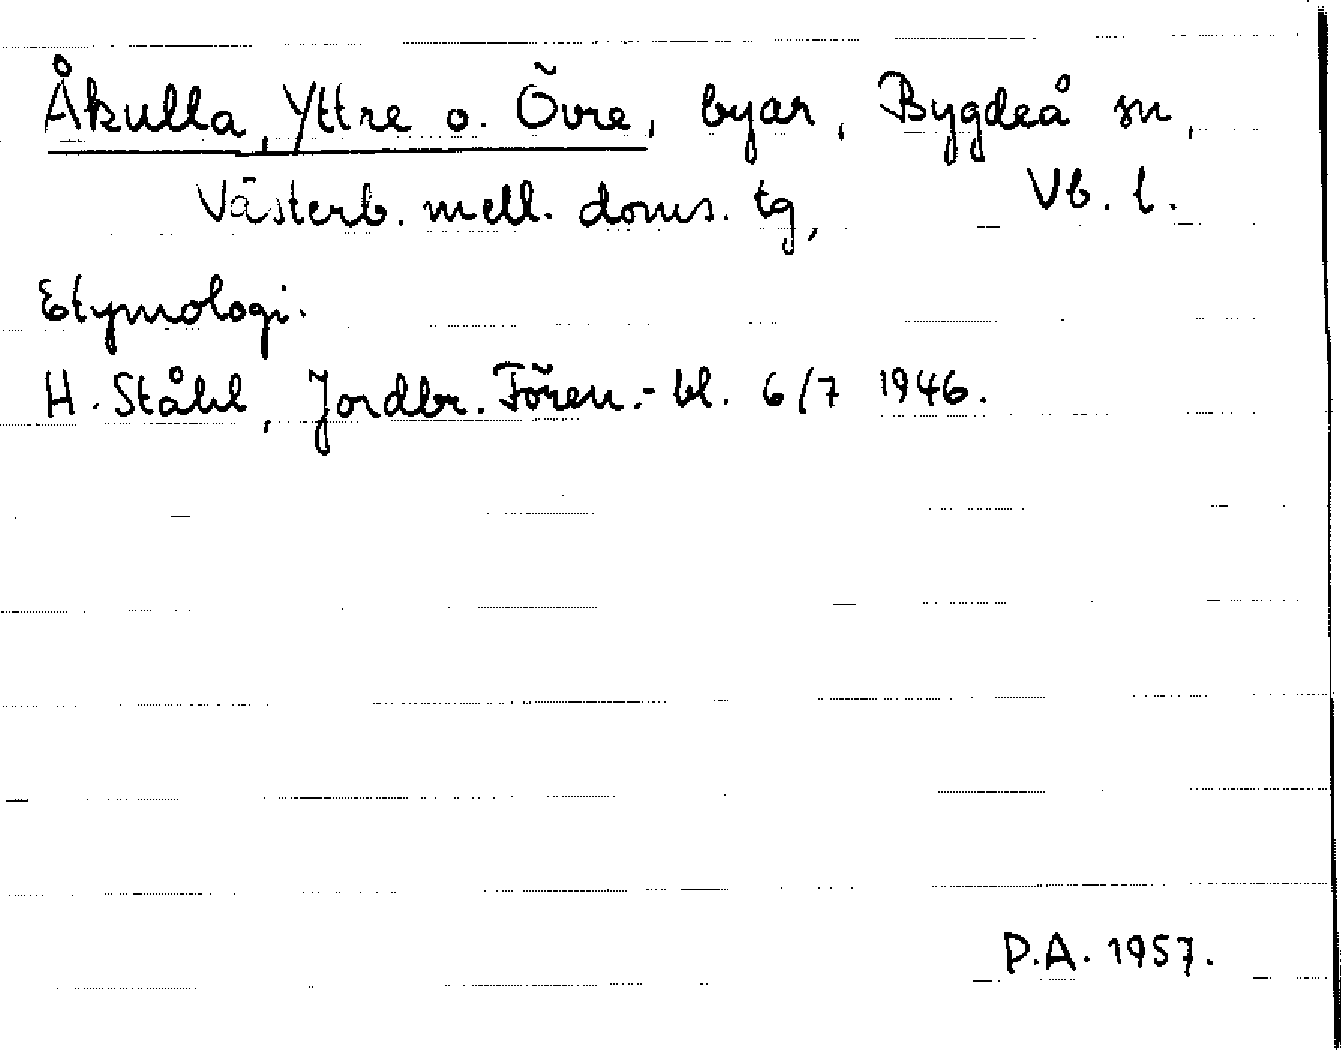 Åkulla, Yttre o. Övre, byar, Bygdeå sn,
Västerb. mell. doms. tg, Vb. l.
Etymologi.
H. Ståhl, Jordbr. Fören.-bl. 6/7 1946.
P.A. 1957.